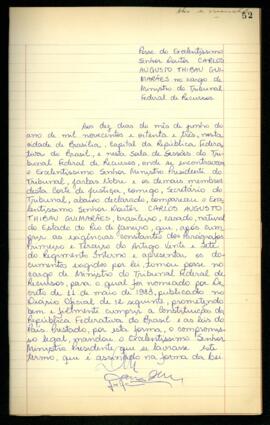 52
Posse do Excelentíssimo
Senhor Doutor CARLOS
AUGUSTO THIBAU GUI-
MARÃES no cargo de
Ministro do Tribunal
Federal de Recursos.
Aos dez dias do mês de junho do
ano de mil novecentos e oitenta e três, nesta
cidade de Brasília, capital da República Federa-
tiva do Brasil, e nesta Sala de Sessões do Tribu-
nal Federal de Recursos, onde se encontravam
o Excelentíssimo Senhor Ministro Presidente do
Tribunal, Jarbas Nobre e os demais membros
desta Corte de Justiça, comigo, Secretário do
Tribunal, abaixo declarado, compareceu o Ex-
celentíssimo Senhor Doutor CARLOS AUGUSTO
THIBAU GUIMARÃES, brasileiro, casado, natural
do Estado do Rio de Janeiro, que, após cum-
prir as exigências constantes dos Parágrafos
Primeiro e Terceiro do Artigo Vinte e sete
do Regimento Interno e apresentar os do-
cumentos exigidos por lei, tomou posse no
cargo de Ministro do Tribunal Federal de
Recursos, para o qual foi nomeado por De-
creto de 11 de maio de 1983, publicado no
Diário Oficial de 12 seguinte, prometendo
bem e fielmente cumprir a Constituição da
República Federativa do Brasil e as leis do
País. Prestado, por esta forma, o compromis-
so legal, mandou o Excelentíssimo Senhor
Ministro Presidente que se lavrasse este
termo, que é assinado na forma da Lei.